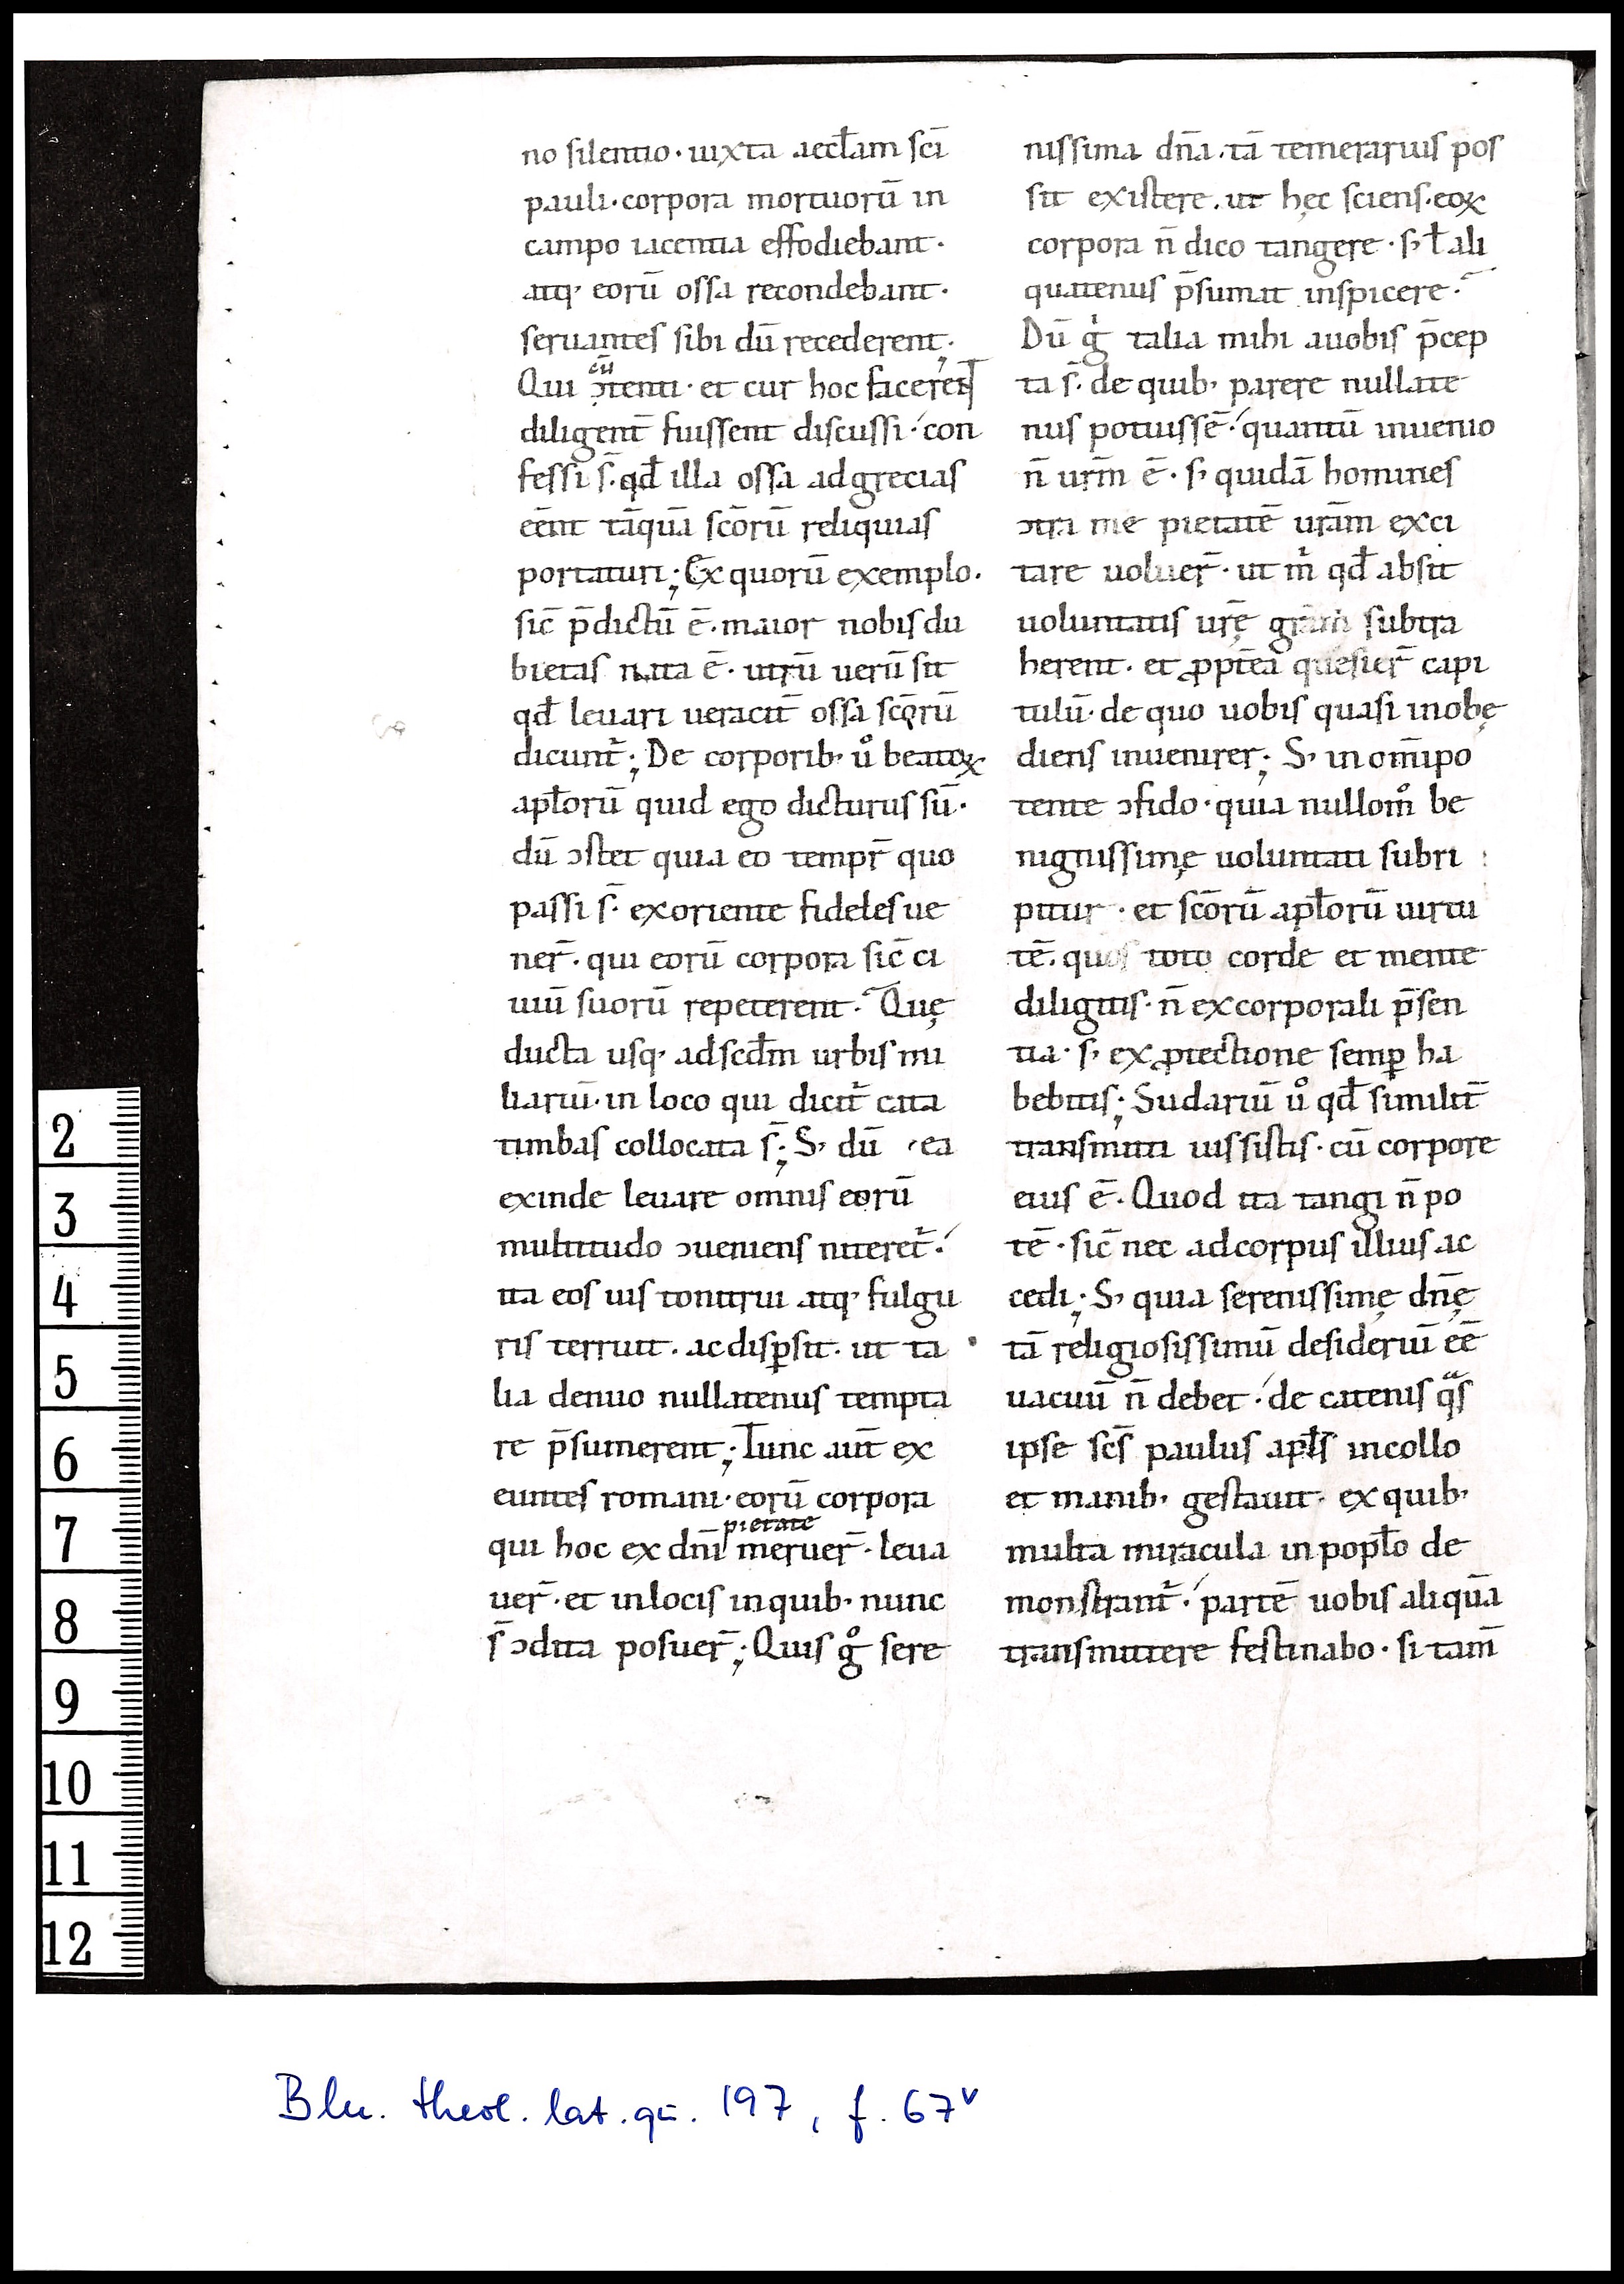 no silentio · iuxta aecłam scī
pauli · corpora mortuorū in
campo iacentia effodiebant ·
atq; eorū ossa recondebant ·
seruantes sibi dū recederent;
cū
Qui ↄtenti · et cur hoc facerent
diligent̄ fuissent discussi · con
fessi s̄ · qđ illa ossa ad grecias
eēnt tāquā scōrū reliquias
portaturi; Ex quorū exemplo ·
sic̄ p̄dictū ē · maior nobis du
bietas nata ē · utrū uerū sit
qđ leuari ueracit̄ ossa scōrū
dicunt̄; De corporib; ů beatoꝝ
apłorū quid ego dicturus sū ·
dū ↄstet quia eo tempr̄ quo
passi s̄ · ex oriente fideles ue
ner̄ · qui eorū corpora sic̄ ci
uiū suorū repeterent · Quę
ducta usq; ad scđm urbis mi
liariū · in loco qui dicit̄ cata
timbas collocata s̄; S; dū ea
exinde leuare omnis eorū
multitudo ↄueniens niteret̄ ·
ita eos uis tonitrui atq; fulgu
ris terruit · ac disꝑsit · ut ta
lia denuo nullatenus tempta
re p̄sumerent; Tunc aut̄ ex
euntes romani · eorū corpora
pietate
qui hoc ex dnī meruer̄ · leua
uer̄ · et in locis in quib; nunc
s̄ ↄdita posuer̄; Quis g° sere
nissima dn̄a · tā temerarius pos
sit existere · ut hęc sciens · eoꝝ
corpora n̄ dico tangere · s; ł ali
quatenus p̄sumat inspicere ·
Dū g̊ talia mihi a uobis p̄cep
ta s̄ · de quib; parere nullate
nus potuissē · quantū inuenio
n̄ urm̄ ē · s; quidā homines
ↄtra me pietatē urām exci
tare uoluer̄ · ut m̊ qđ absit
uoluntatis urę̄ grām subtra
herent · et ꝓpptēa quesier̄ capi
tulū · de quo uobis quasi inobę
diens inuenirer; S; in om̄ipo
tente ↄfido · quia nullom̊ be
nignissimę uoluntati subri
pitur · et scōrū apłorū uirtu
tē · quos toto corde et mente
diligitis · n̄ ex corporali p̄sen
tia · s; ex ꝓtectione semꝑ ha
bebitis; Sudariū ů qđ similit̄
transmitti iussistis · cū corpore
eius ē · Quod ita tangi n̄ po
tē · sic̄ nec ad corpus illius ac
cedi; S; quia serenissimę dn̄ę
tā religiosissimū desideriū eē
uacuū n̄ debet · de catenis qᵃs
ipse scs̄ paulus apłs in collo
et manib; gestauit · ex quib;
multa miracula in popło de
monstrant̄ · partē uobis aliquā
transmittere festinabo · si tam̄
2
3
4
5
6
7
8
9
10
11
12
Bln. theol. lat. qu. 197, f. 67ᵛ